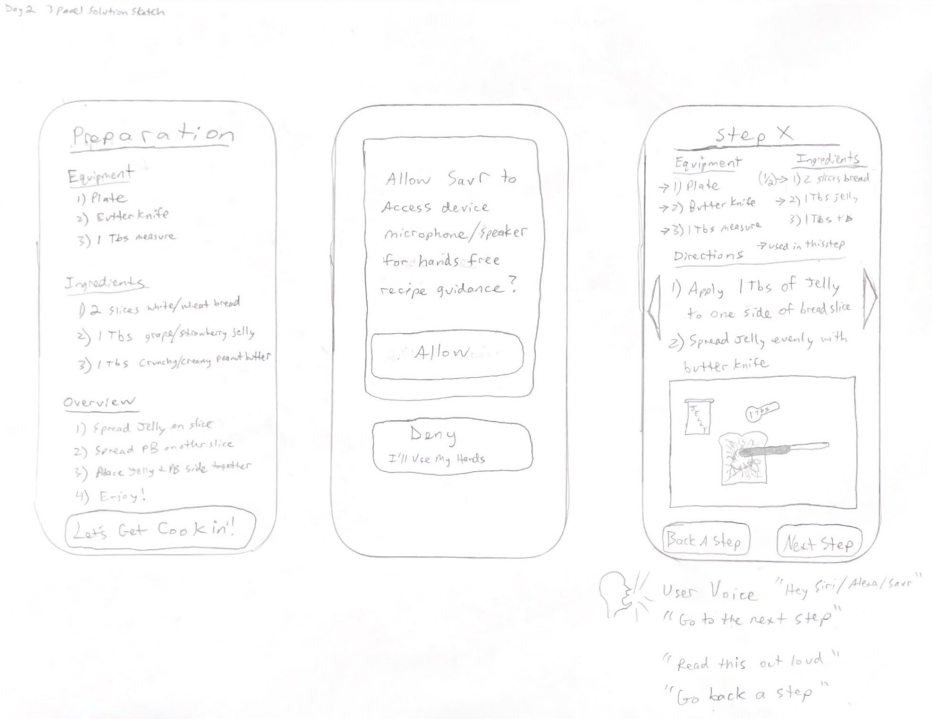 Day 2 3 Panel Solution Sketch
Preparation
Equipment
1) Plate
2) Butter Knife
3) 1 Tbs measure
Ingredients
1) 2 slices white/wheat bread
2) 1 Tbs grape/strawberry jelly
3) 1 Tbs Crunchy/creamy peanut butter
Overview
1) Spread Jelly on slice
2) Spread PB on other slice
3) Place Jelly + PB side together
4) Enjoy!
Let's Get Cookin'!
Allow Savr to
Access device
microphone/speaker
for hands free
recipe guidance?
Allow
Deny
I'll Use My Hands
Step X
Equipment
→ 1) Plate
→ 2) Butter Knife
→ 3) 1 Tbs measure
Ingredients
(1/2) → 1) 2 slices bread
→ 2) 1 Tbs jelly
3) 1 Tbs
→ used in this step
Directions
1) Apply 1 Tbs of Jelly
to one side of bread slice
2) Spread Jelly evenly with
butter knife
1 Tbs
Back A Step
Next Step
User Voice "Hey Siri/Alexa/Savr"
"Go to the next step"
"Read this out loud"
"Go back a step"